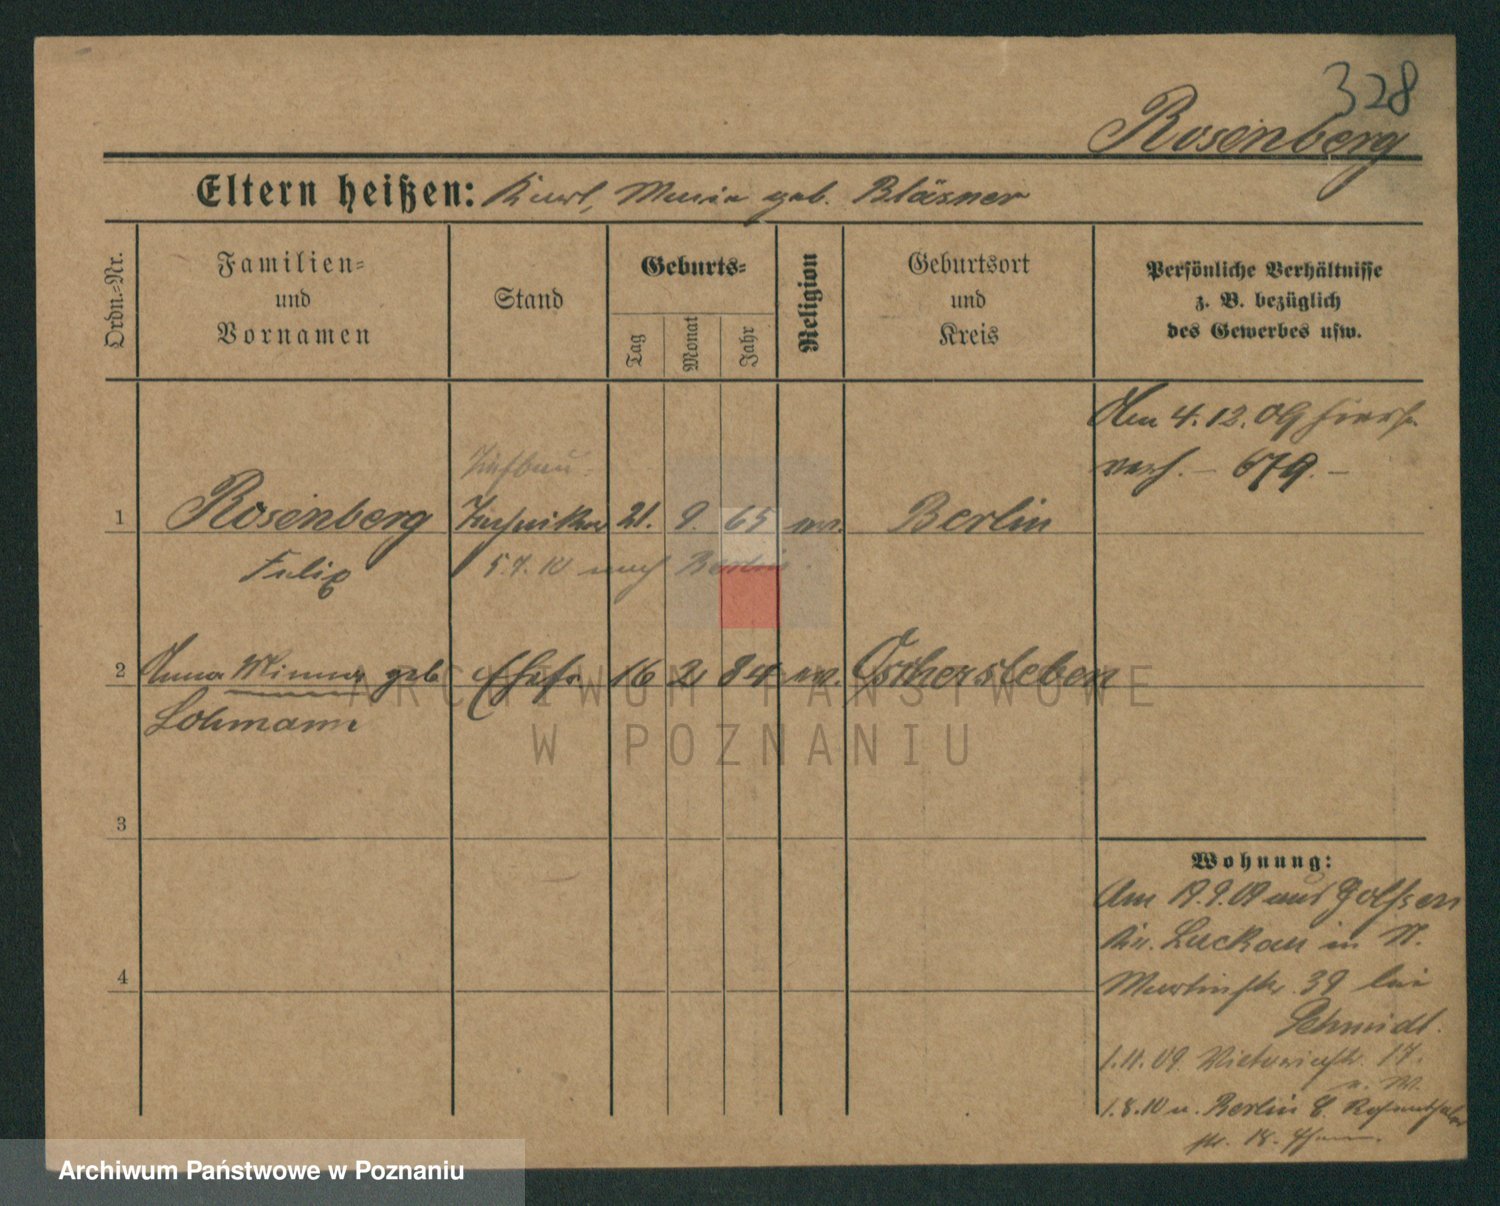 328
Rosenberg
Eltern heißen: Karl, Maria geb. Bläsner
Ordn.=Nr.
Familien=
und
Vornamen
Stand
Geburts=
Tag
Monat
Jahr
Religion
Geburtsort
und
Kreis
Persönliche Verhältnisse
z. B. bezüglich
des Gewerbes usw.
Am 4.12.09 hiers.
verh. – 679. –
Tiefbau-
1 Rosenberg Techniker 21. 9. 65 ev. Berlin
Felix 5.7.10 nach Berlin.
2 Anna Minna geb Ehefr 16 2 84 ev. Oschersleben
Lohmann
3
4
Wohnung:
Am 19.9.09 aus Golssen
Kr. Luckau in W.
Martinstr. 39 bei
Schmidt.
1.11.09 Victoriastr. 17.
1.8.10 n. Berlin
str. 18.
ARCHIWUM PAŃSTWOWE
W POZNANIU
Archiwum Państwowe w Poznaniu